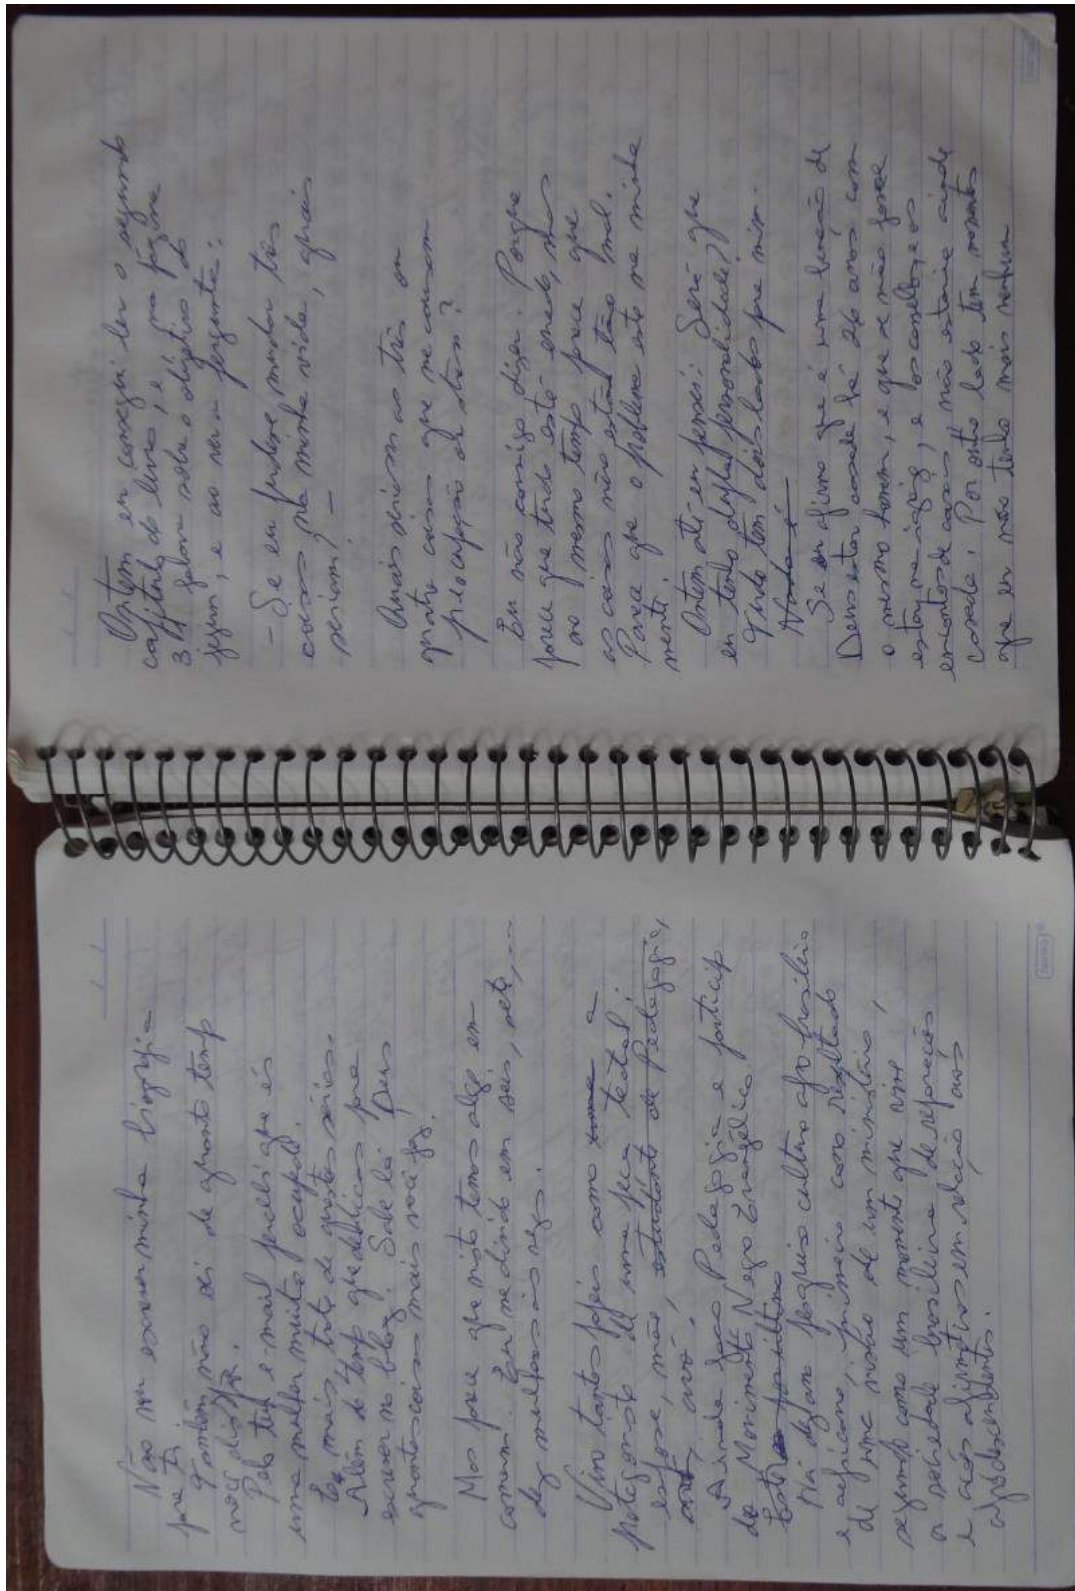 Não vou escrever minha biografia
pra ti.
Também não sei de quanto tempo
você dispõe.
Pelo teu e-mail percebi que és
uma mulher muito ocupada.
E mais, trata de questões sérias.
Além do tempo que dedicas para
escrever no blog. Sabe lá Deus
quantas coisas mais você faz.
Mas parece que nisto temos algo em
comum. Eu me divido em seis, sete,
dez mulheres às vezes.
Vivo tantos papéis como a
protagonista de uma peça teatral:
esposa, mãe, estudante de Pedagogia,
avó.
Ainda faço Pedagogia e participo
do Movimento Negro Evangélico.
Há dez anos pesquiso cultura afro brasileira
e africana, primeiro como resultado
de uma visão de um ministério,
segundo como um momento que vive
a sociedade brasileira de reparações
e ações afirmativas em relação aos
afrodescendentes.
Ontem eu consegui ler o segundo
capítulo do livro, e na página
3 falava sobre o objetivo do
jejum, e ao ver a pergunta:
- Se eu pudesse mudar três
coisas na minha vida, quais
seriam? -
Quais seriam as três ou
quatro coisas que me causam
preocupação ou stress?
Eu não consigo dizer. Porque
parece que tudo está errado, mas
ao mesmo tempo parece que
as coisas não estão tão mal.
Parece que o problema está na minha
mente.
Ontem até eu pensei: Será que
eu tenho dupla personalidade?
Tudo tem dois lados pra mim.
Se eu afirmo que é uma benção de
Deus estar casada há 26 anos com
o mesmo homem, e que se não fosse
estar na igreja, e os conselhos, e os
encontros de casais não estaria ainda
casada. Por outro lado tem momentos
que eu não tenho mais nenhum